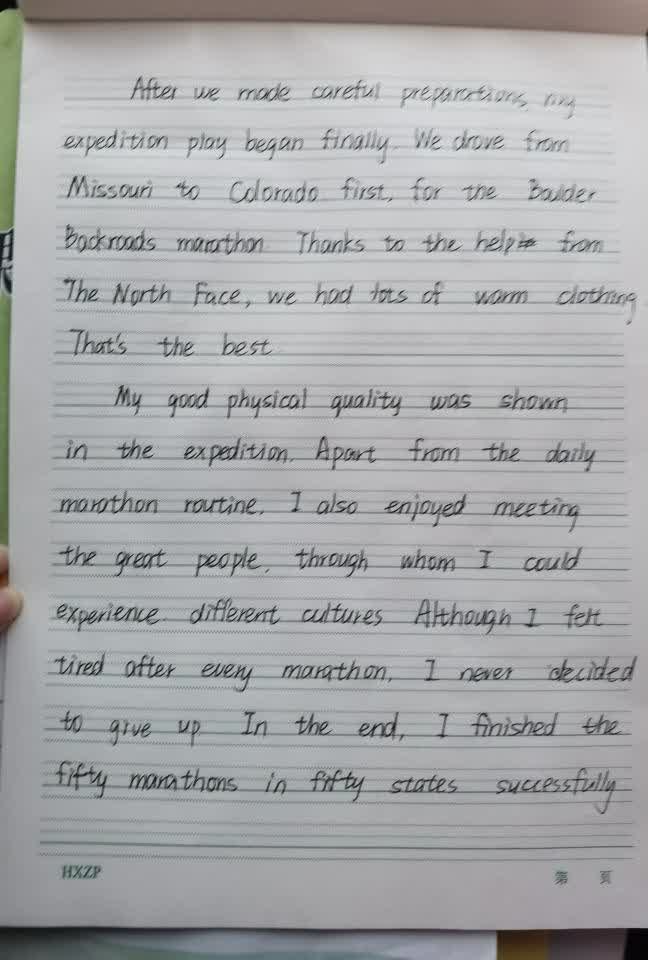 After we made careful preparations, my
expedition play began finally. We drove from
Missouri to Colorado first, for the Boulder
Backroads marathon. Thanks to the help from
The North Face, we had lots of warm clothing
That's the best
My good physical quality was shown
in the expedition. Apart from the daily
marathon routine, I also enjoyed meeting
the great people, through whom I could
experience different cultures Although I felt
tired after every marathon, I never decided
to give up In the end, I finished the
fifty marathons in fifty states successfully
HXZP
第 页